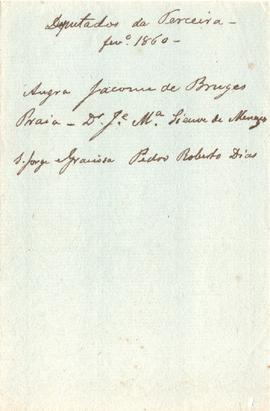 Deputados da Terceira -
fevº. 1860 -
Angra Jacome de Bruges
Praia - Dr. Jº. Mª. Sieuve de Menezes
S. Jorge e Graciosa Pedro Roberto Dias